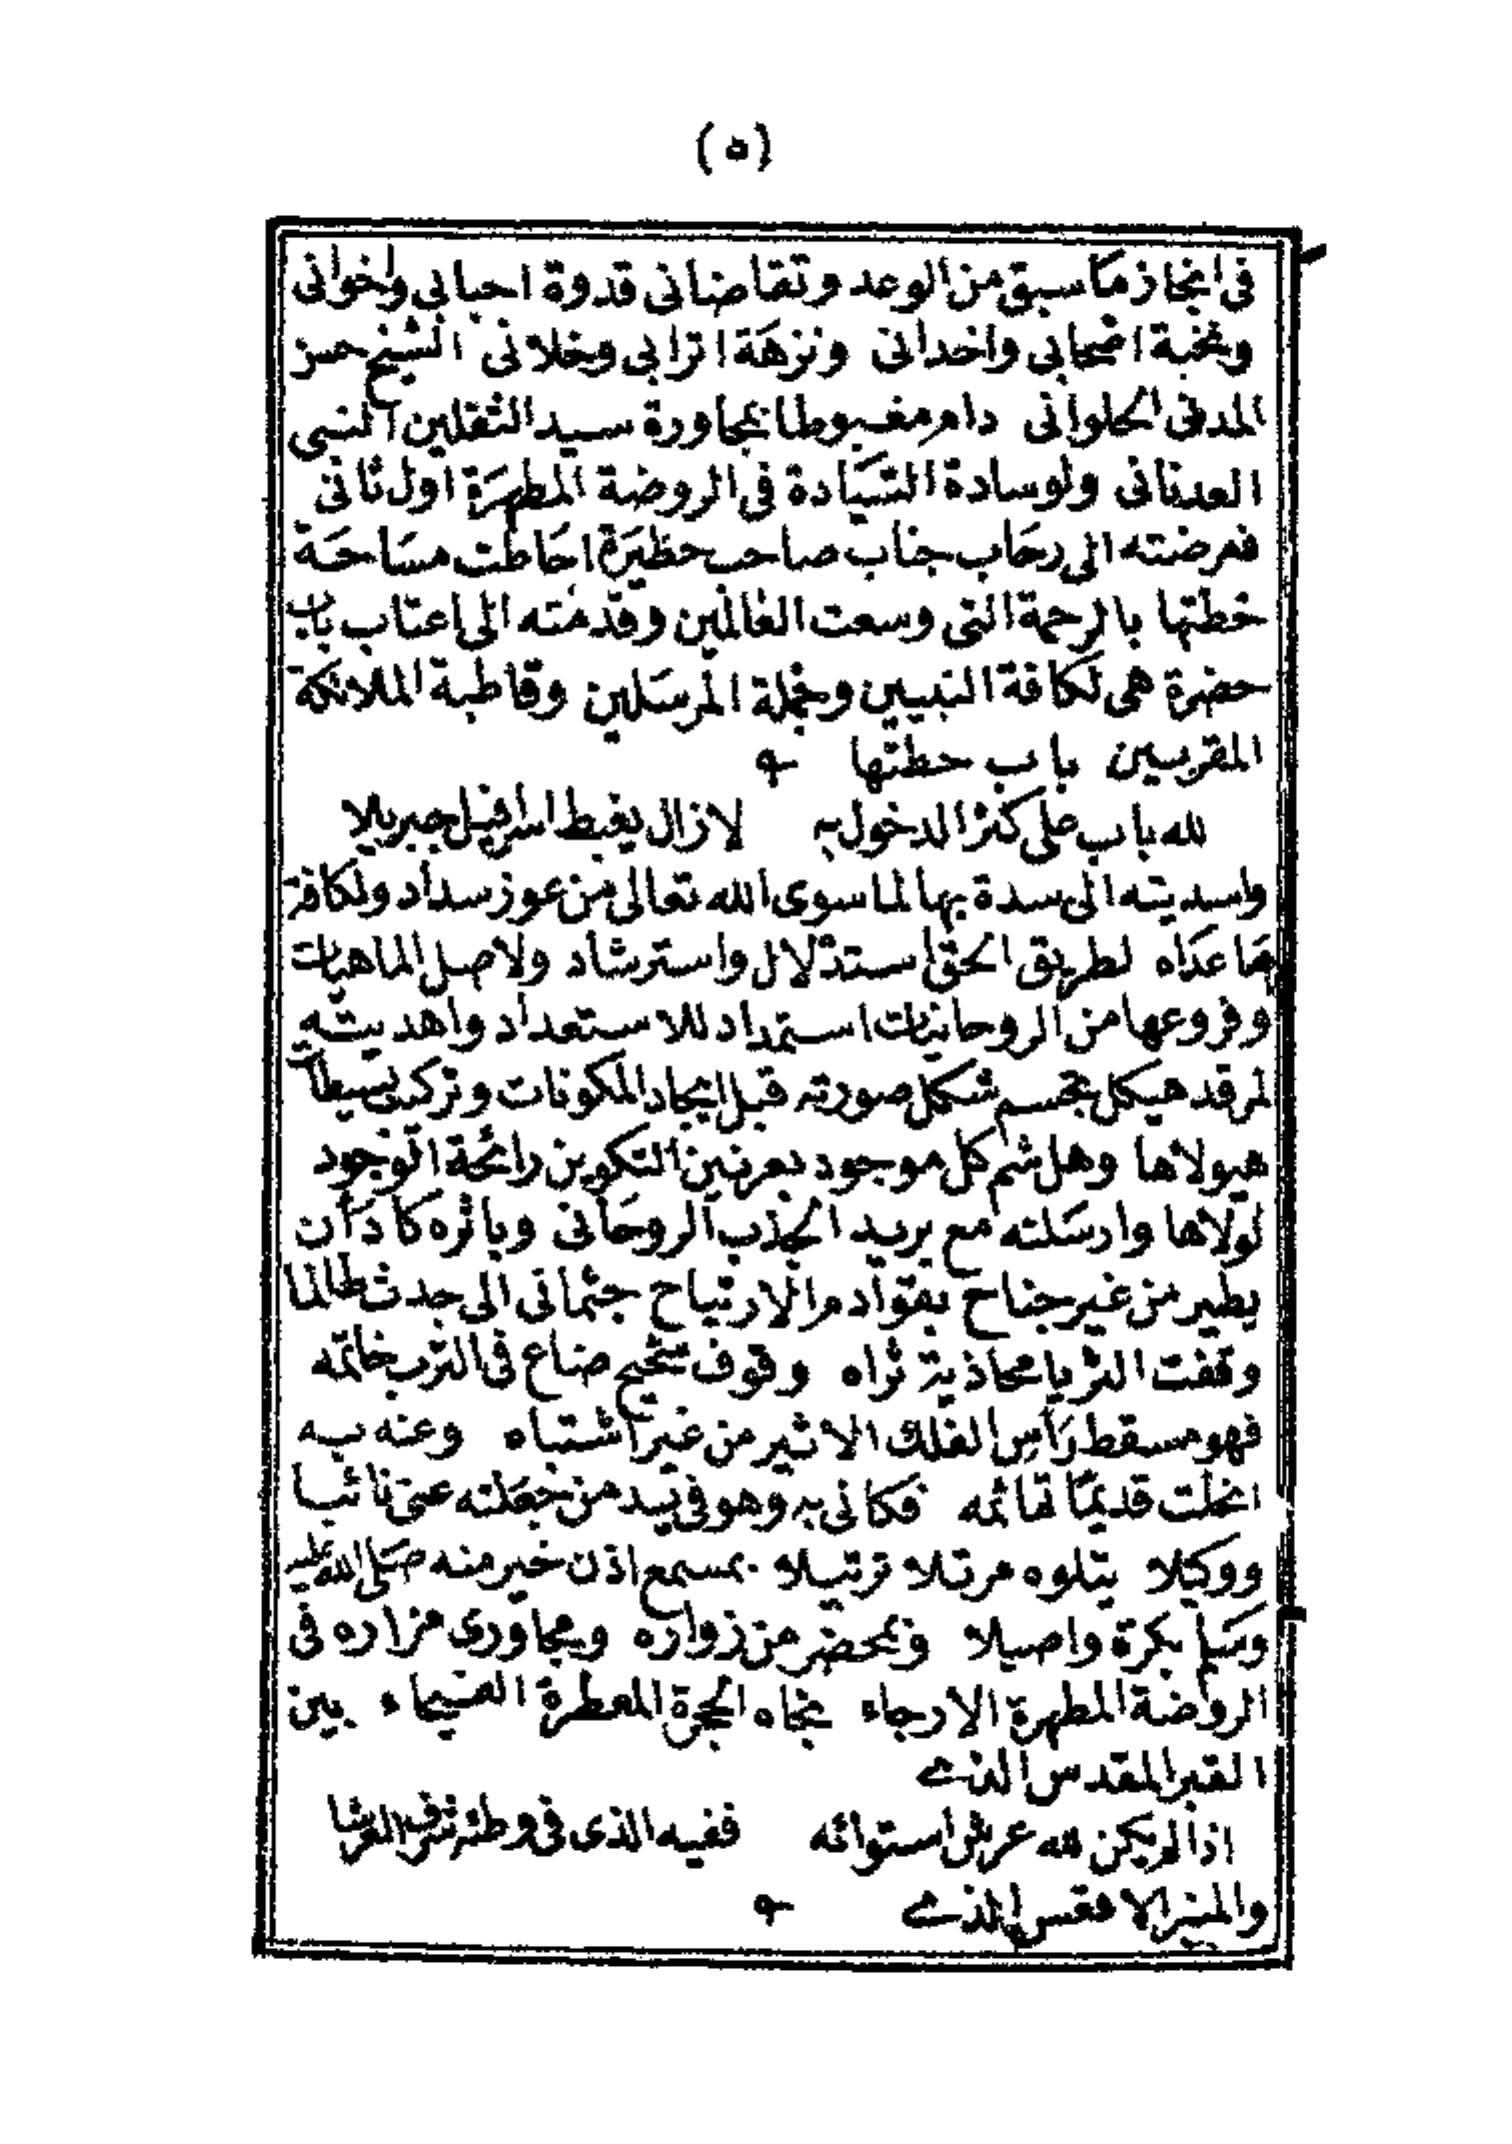 (٥)
في انجاز ما سبق من الوعد وتقاضاني قدوة احبابي واخواني
ونخبة اصحابي واخداني ونزهة اترابي وخلاني الشيخ حسن
المدني الحلواني دام مغبوطا بمجاورة سيد الثقلين النبي
العدناني ولوسادة السيادة في الروضة المطهرة اول ثاني
فعرضته الى رحاب جناب صاحب حظيرة احاطت مساحة
خطتها بالرحمة التي وسعت العالمين وقدمته الى اعتاب باب
حضرة هي لكافة النبيين وجملة المرسلين وقاطبة الملائكة
المقربين باب حطتها
لله باب على كنز الدخول به لا زال يغبط اسرافيل جبريلا
واسديته الى سدة بها لما سوى الله تعالى من عوز سداد ولكافة
ما عداه لطريق الحق استدلال واسترشاد ولاصل الماهيات
وفروعها من الروحانيات استمداد للاستعداد واهديته
لمرقد هيكل تجسم شكل صورته قبل ايجاد المكونات وتركيب بسيطات
هيولاها وهل شم كل موجود بعرنين التكوين رائحة الوجود
لولاها وارسلته مع بريد الجذب الروحاني وباثره كاد أن
يطير من غير جناح بقوادم الارتياح جثماني الى جدث طالما
وقفت الثريا محاذية ثراه وقوف شحيح ضاع في الترب خاتمه
فهو مسقط رأس الفلك الاثير من غير اشتباه وعنه به
انحلت قديما تمائمه فكاني به وهو في يد من جعلته عني نائبا
ووكيلا يتلوه مرتلا ترتيلا بمسمع اذن خير منه صلى الله عليه
وسلم بكرة واصيلا وبمحضر من زواره ومجاوري مزاره في
الروضة المطهرة الارجاء تجاه الحجرة المعطرة الفيحاء بين
القبر المقدس الذي
اذا لم يكن لله عرش استوائه ففيه الذي في وطئه شرف العرشا
والمنبر الاقعس الذي